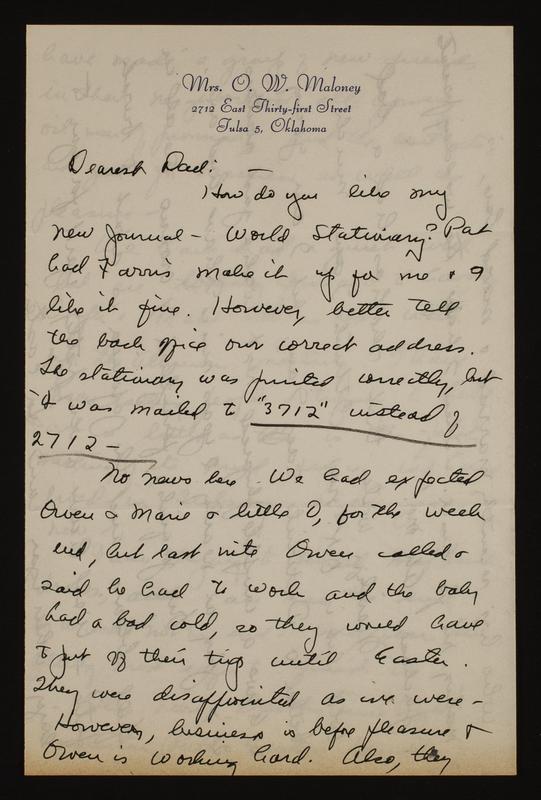 Mrs. O. W. Maloney
2712 East Thirty-first Street
Tulsa 5, Oklahoma
Dearest Dad: —
How do you like my
new Journal - World Stationary? Pat
had Farris make it up for me & I
like it fine. However, better tell
the back office our correct address.
The stationary was printed correctly, but
it was mailed to "3712" instead of
2712 —
No news here. We had expected
Owen & Marie & little O, for the week
end, but last nite Owen called &
said he had to work and the baby
had a bad cold, so they would have
to put off their trip until Easter.
They were disappointed as we were -
However, business is before pleasure &
Owen is working hard. Also, they